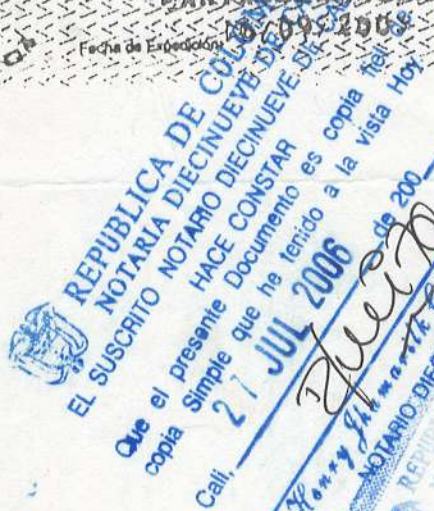 Fecha de Expedición
REPUBLICA DE
NOTARIA DIECINUEVE DE
EL SUSCRITO NOTARIO DIECINUEVE DE
HACE CONSTAR
Que el presente Documento es copia fiel de
copia Simple que he tenido a la vista Hoy
27 JUL 2006
Cali, de 200
NOTARIO